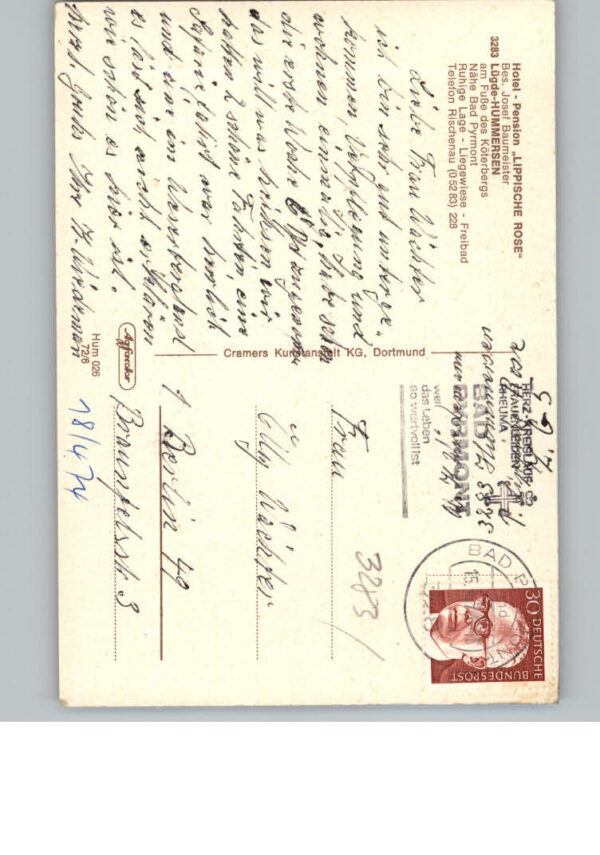 Hotel - Pension „LIPPISCHE ROSE“
Bes. Josef Baumeister
3283 Lügde-HUMMERSEN
am Fuße des Köterbergs
Nähe Bad Pyrmont
Ruhige Lage - Liegewiese - Freibad
Telefon Rischenau (0 52 83) 228
Liebe Frau Wächter
ich bin sehr gut unterge-
kommen, Verpflegung und
wohnen einmalig, habe schon
die erste Woche 6 Pf zugenommen
das will was heißen. wir
hatten 2 schöne Fahrten, eine
fahrt war herrlich
und die im
es läßt sich nicht erklären
wie schön es hier ist.
Herzl. Grüße Ihre
Hum 026
72/6
Agfacolor
Cramers Kunstanstalt KG, Dortmund
HERZ-KREISLAUF
FRAUENLEIDEN
RHEUMA
BAD
PYRMONT
weil
das Leben
so wertvoll ist
BAD PYRMONT
30 DEUTSCHE
BUNDESPOST
3283
Frau
Elly Wächter
1 Berlin 49
Braunfelsstr. 3
18/4.74